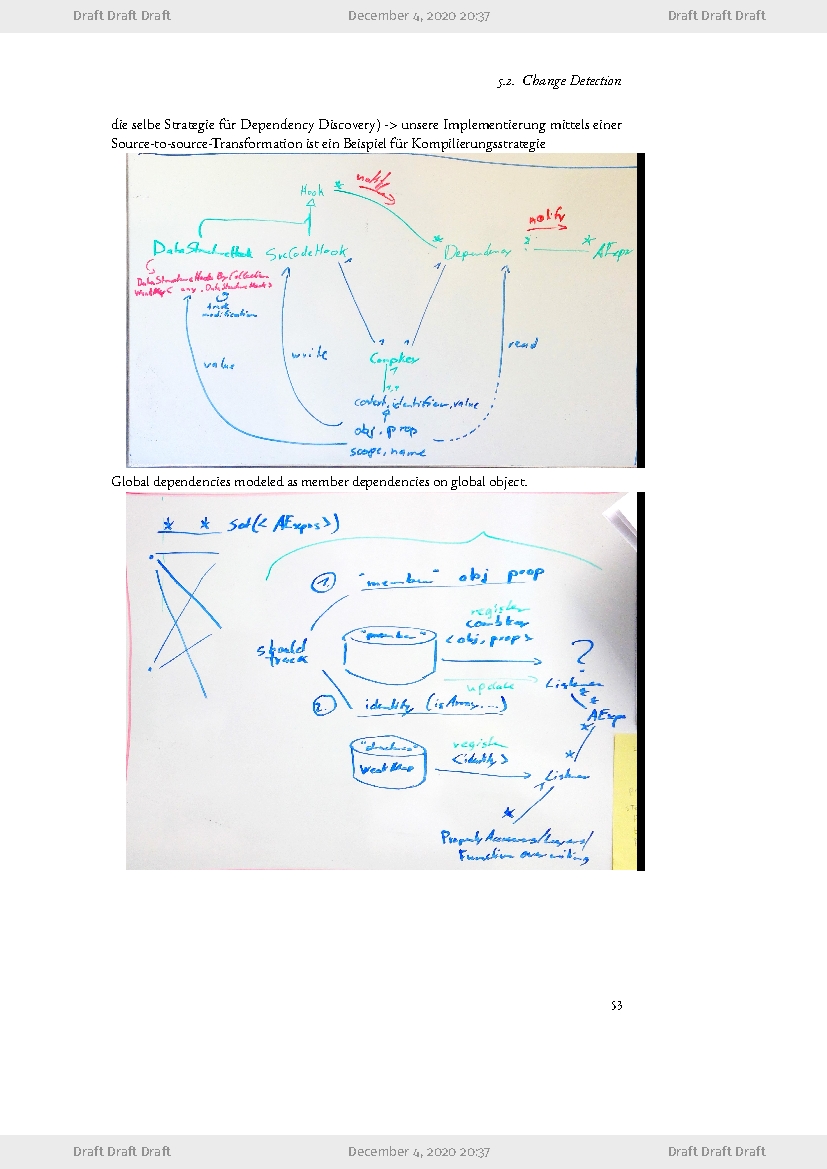 Draft Draft Draft December 4, 2020 20:37 Draft Draft Draft
5.2. Change Detection
die selbe Strategie für Dependency Discovery) -> unsere Implementierung mittels einer
Source-to-source-Transformation ist ein Beispiel für Kompilierungsstrategie
Hook * notify
notify
DataStructureHook SrcCodeHook * Dependency * AExpr
DataStructureHooks By Collection
WeakMap< any, DataStructureHook>
track
modification
value write read
CompKey
context, identifier, value
obj, prop
scope, name
Global dependencies modeled as member dependencies on global object.
* * Set(< AExprs >)
1. "member" obj prop
register
CompKey
<obj, props>
should
track
"member"
?
update
Listener
2. identity (isArray, ...)
* AExpr
*
register
<identity>
WeakMap
* Listener
*
Property Accesses/Layers/
Function overwriting
53
Draft Draft Draft December 4, 2020 20:37 Draft Draft Draft